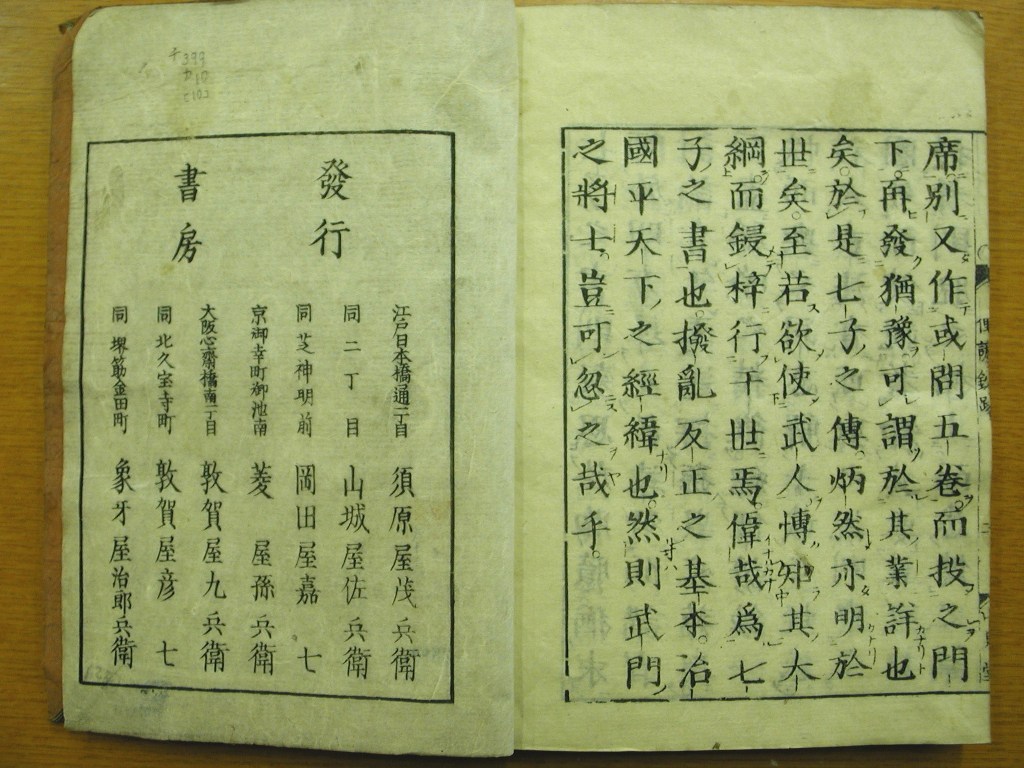 席別又作或問五卷而投之門
下。再發猶豫可謂於其業詳也
矣。於是七子之傳炳然亦明於
世矣。至若欲使武人博知其大
綱而鋟梓行于世焉偉哉爲七
子之書也撥亂反正之基本。治
國平天下之經緯也。然則武門
之將士豈可忽之哉乎。
發行
書房
江戸日本橋通一丁目 須原屋茂兵衛
同二丁目 山城屋佐兵衛
同芝神明前 岡田屋嘉七
京御幸町御池南 菱屋孫兵衛
大阪心齋橋南二丁目 敦賀屋九兵衛
同北久宝寺町 敦賀屋彦七
同堺筋金田町 象牙屋治郎兵衛